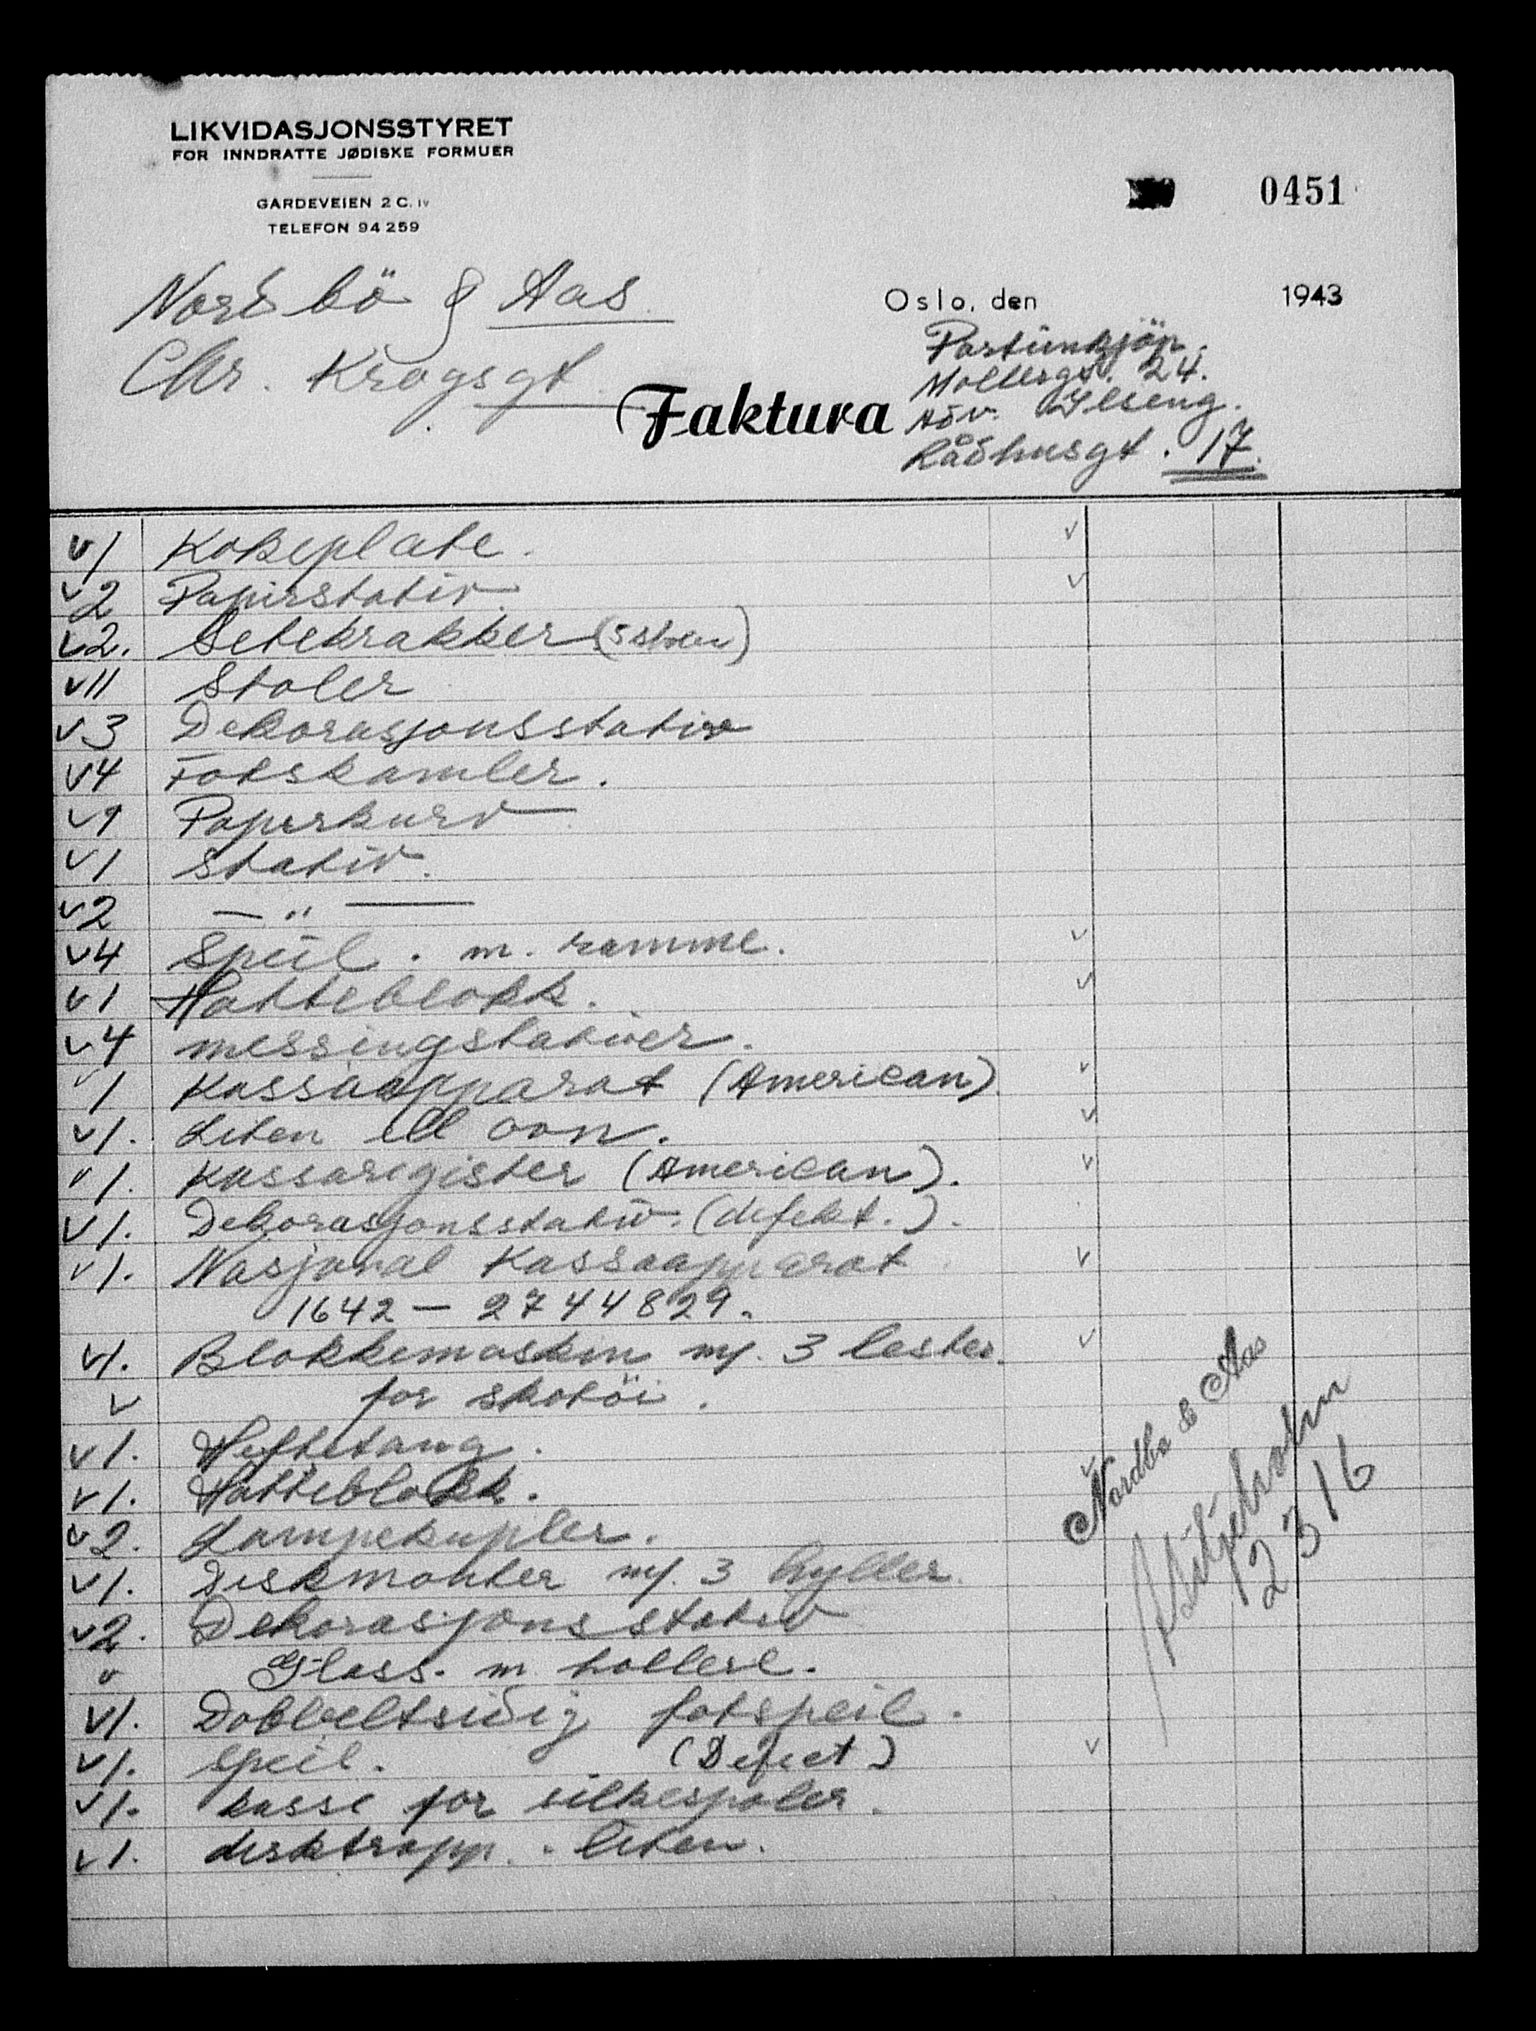 LIKVIDASJONSSTYRET
FOR INNDRATTE JØDISKE FORMUER
GARDEVEIEN 2 C. IV
TELEFON 94259
0451
Nordbö & Aas
Chr. Krogsgt.
Oslo, den 1943
Partiinkjöp.
Mollergt. 24.
Adv. Ilseng.
Rådhusgt. 17.
Faktura
v 1 Kokeplate. v
v 2 Papirstativ v
v 2. Setekrakker (5 stoler)
v 11 Stoler
v 3 Dekorasjonsstativ
v 4 Fotskamler.
v 1 Papirkurv
v 1 Stativ.
v 2 — " —
v 4 Speil. m. ramme. v
v 1 Hatteblokk. v
v 4 messingstativer.
v 1 Kassaapparat (American) v
v 1. Liten ell ovn. v
v 1. Kassaregister (American). v
v 1. Dekorasjonsstativ. (defekt.).
v 1. Nasjonal Kassaapparat v
1642 — 2744829.
v 1. Blokkemaskin m/. 3 lester v
v for skotöi.
v 1. Heftetang.
v 1. Hatteblokk.
v 2. Lampekupler.
v 1. Diskmonter m/. 3 hyller.
v 2. Dekorasjonsstativ
v Glass. m
v 1. Dobbeltsidig fotspeil.
v 1. speil. (Defect) v
v 1. kasse for silkespoler.
v 1. disktrapp. - liten.
Nordbo & Aas
12316